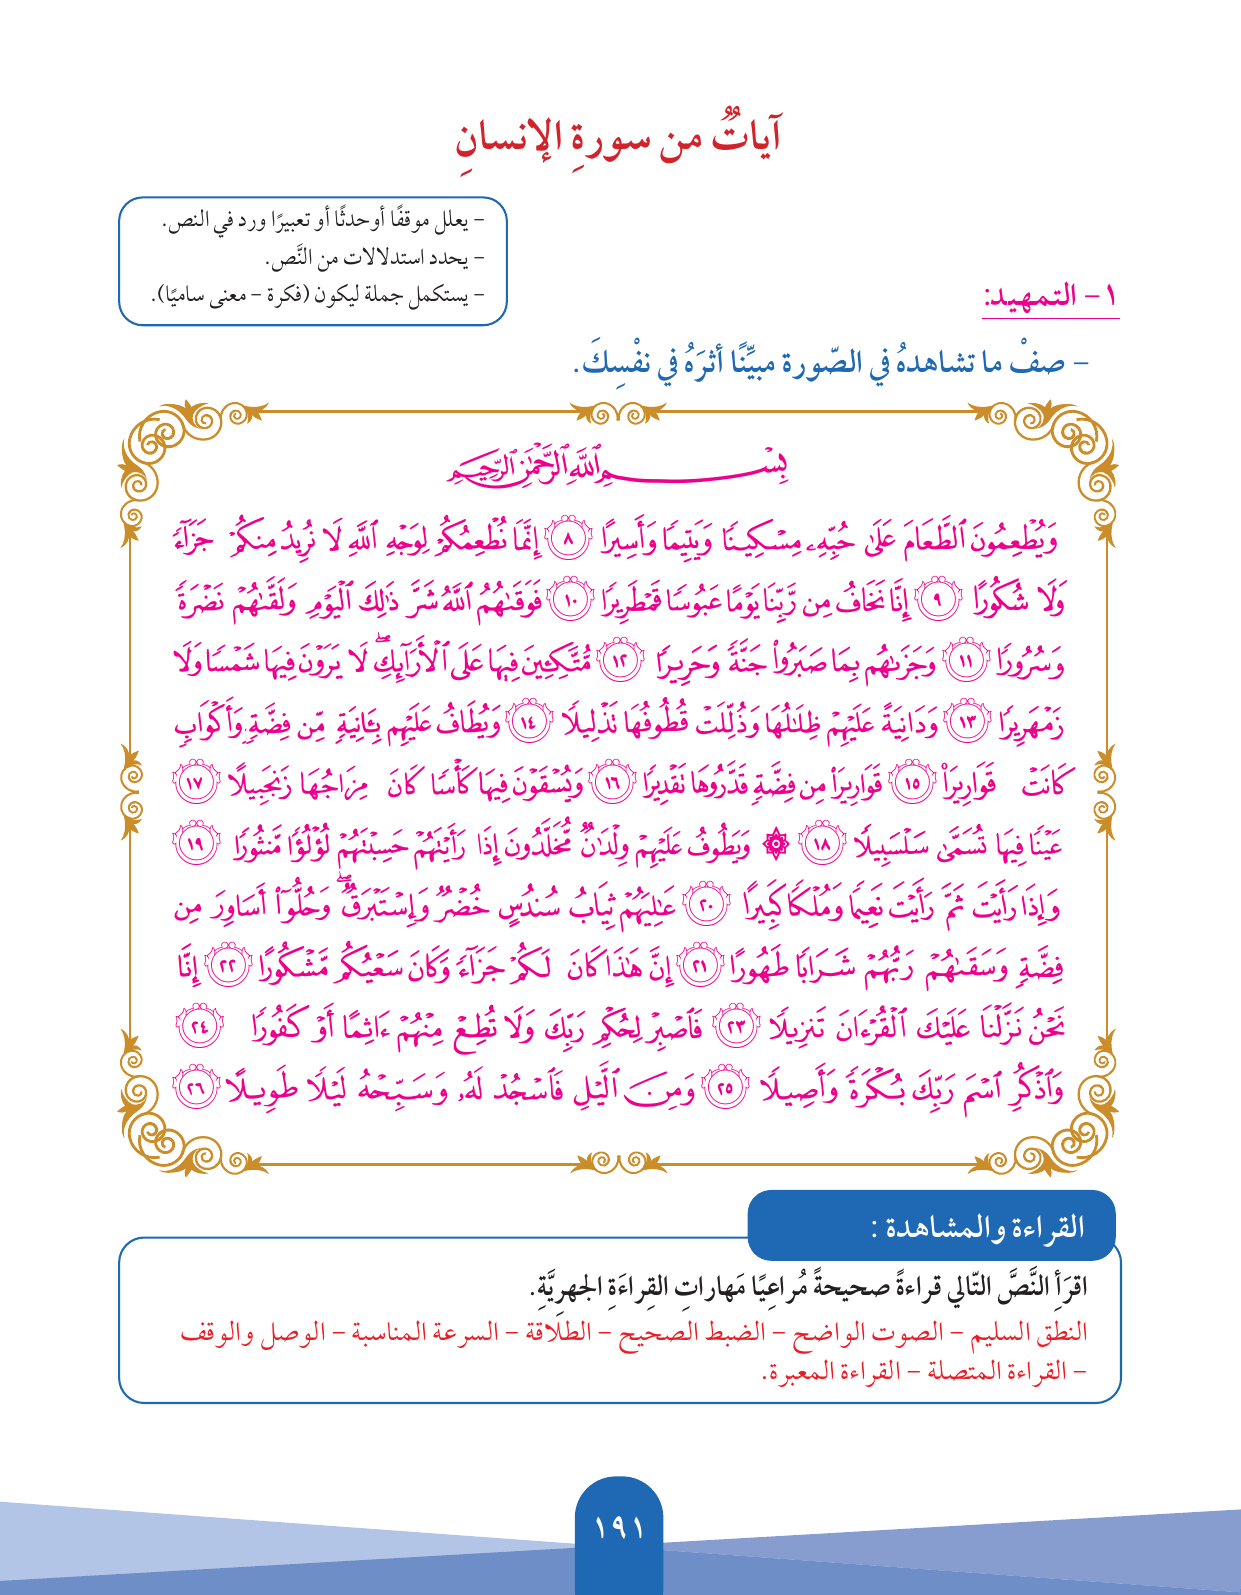 آياتٌ من سورةِ الإنسانِ
– يعلل موقفًا أوحدثًا أو تعبيرًا ورد في النص.
– يحدد استدلالات من النَّص.
– يستكمل جملة ليكون (فكرة – معنى ساميًا).
١ – التمهيد:
– صفْ ما تشاهدهُ في الصّورة مبيِّنًا أثرَهُ في نفْسِكَ.
بِسْمِ ٱللَّهِ ٱلرَّحْمَٰنِ ٱلرَّحِيمِ
وَيُطْعِمُونَ ٱلطَّعَامَ عَلَىٰ حُبِّهِۦ مِسْكِينٗا وَيَتِيمٗا وَأَسِيرًا ٨ إِنَّمَا نُطْعِمُكُمْ لِوَجْهِ ٱللَّهِ لَا نُرِيدُ مِنكُمْ جَزَآءٗ
وَلَا شُكُورًا ٩ إِنَّا نَخَافُ مِن رَّبِّنَا يَوْمًا عَبُوسٗا قَمْطَرِيرٗا ١٠ فَوَقَىٰهُمُ ٱللَّهُ شَرَّ ذَٰلِكَ ٱلْيَوْمِ وَلَقَّىٰهُمْ نَضْرَةٗ
وَسُرُورٗا ١١ وَجَزَىٰهُم بِمَا صَبَرُواْ جَنَّةٗ وَحَرِيرٗا ١٢ مُّتَّكِـِٔينَ فِيهَا عَلَى ٱلْأَرَآئِكِۖ لَا يَرَوْنَ فِيهَا شَمْسٗا وَلَا
زَمْهَرِيرٗا ١٣ وَدَانِيَةً عَلَيْهِمْ ظِلَٰلُهَا وَذُلِّلَتْ قُطُوفُهَا تَذْلِيلٗا ١٤ وَيُطَافُ عَلَيْهِم بِـَٔانِيَةٖ مِّن فِضَّةٖ وَأَكْوَابٖ
كَانَتْ قَوَارِيرَا۠ ١٥ قَوَارِيرَا۠ مِن فِضَّةٖ قَدَّرُوهَا تَقْدِيرٗا ١٦ وَيُسْقَوْنَ فِيهَا كَأْسٗا كَانَ مِزَاجُهَا زَنجَبِيلًا ١٧
عَيْنٗا فِيهَا تُسَمَّىٰ سَلْسَبِيلٗا ١٨ ۞ وَيَطُوفُ عَلَيْهِمْ وِلْدَٰنٞ مُّخَلَّدُونَ إِذَا رَأَيْتَهُمْ حَسِبْتَهُمْ لُؤْلُؤٗا مَّنثُورٗا ١٩
وَإِذَا رَأَيْتَ ثَمَّ رَأَيْتَ نَعِيمٗا وَمُلْكٗا كَبِيرًا ٢٠ عَٰلِيَهُمْ ثِيَابُ سُندُسٍ خُضْرٞ وَإِسْتَبْرَقٞۖ وَحُلُّوٓاْ أَسَاوِرَ مِن
فِضَّةٖ وَسَقَىٰهُمْ رَبُّهُمْ شَرَابٗا طَهُورًا ٢١ إِنَّ هَٰذَا كَانَ لَكُمْ جَزَآءٗ وَكَانَ سَعْيُكُم مَّشْكُورًا ٢٢ إِنَّا
نَحْنُ نَزَّلْنَا عَلَيْكَ ٱلْقُرْءَانَ تَنزِيلٗا ٢٣ فَٱصْبِرْ لِحُكْمِ رَبِّكَ وَلَا تُطِعْ مِنْهُمْ ءَاثِمًا أَوْ كَفُورٗا ٢٤
وَٱذْكُرِ ٱسْمَ رَبِّكَ بُكْرَةٗ وَأَصِيلٗا ٢٥ وَمِنَ ٱلَّيْلِ فَٱسْجُدْ لَهُۥ وَسَبِّحْهُ لَيْلٗا طَوِيلًا ٢٦
القراءة والمشاهدة :
اقرَأِ النَّصَّ التّالي قراءةً صحيحةً مُراعِيًا مَهاراتِ القِراءَةِ الجهرِيَّةِ.
النطق السليم – الصوت الواضح – الضبط الصحيح – الطلاقة – السرعة المناسبة – الوصل والوقف
– القراءة المتصلة – القراءة المعبرة.
١٩١